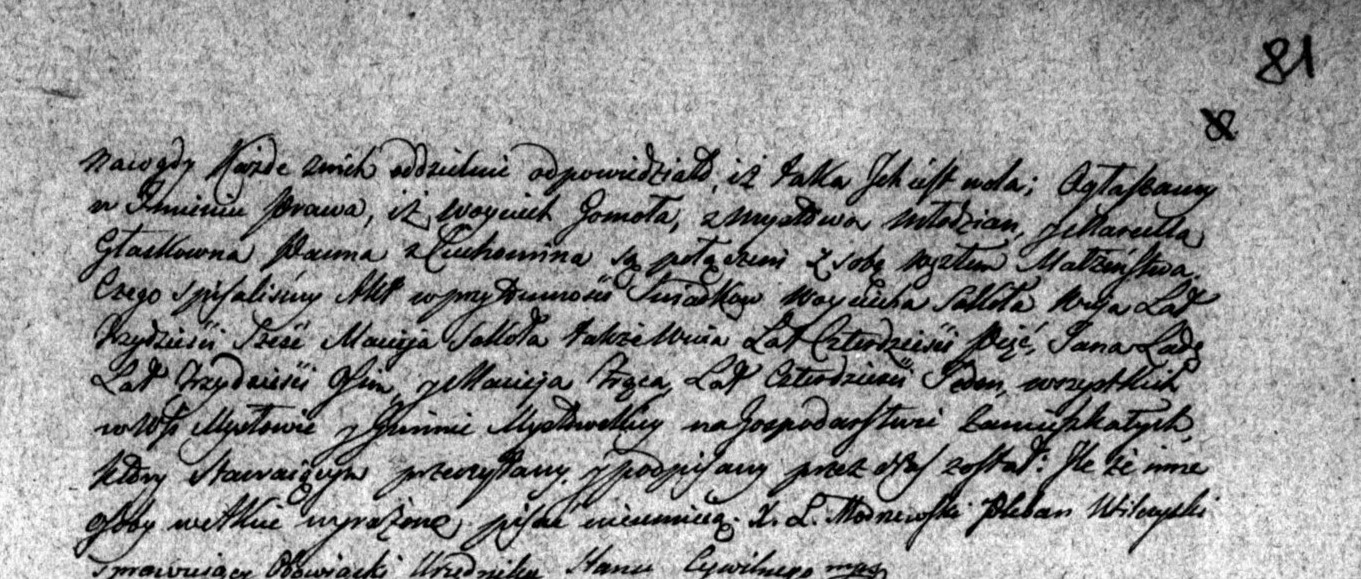 81
na co gdy Każde z nich oddzielnie odpowiedziało, iż taka Jch iest wola; Ogłaszamy
w Jmieniu Prawa, iż Woyciech Gomoła, z Mysłowa młodzian, y Maryella
Głaskowna Panna z Ciechomina są połączeni z sobą węzłem Małżeństwa.
Czego spisaliśmy Akt w przytomności Swiadkow Woyciecha Sokoła Wuja Lat
Trzydzieści Sześć Macieja Sokoła także Wuia Lat Czterdzieści Pięć, Jana Lady
Lat Trzydzieści Osm, y Macieja Lat Czterdzieści Jeden, wszystkich
w Wsi Mysłowie y Gminnie Mysłowskiey na Gospodarstwie Zamieszkałych,
który Stawaiącym przeczytany, y podpisany przez Nas został: Jle że inne
osoby wszelkie wyrażone pisać nieumieią. X. L. Modzewski Pleban Wilczyski
Sprawuiący Obowiązki Urzędnika Stanu Cywilnego mpp